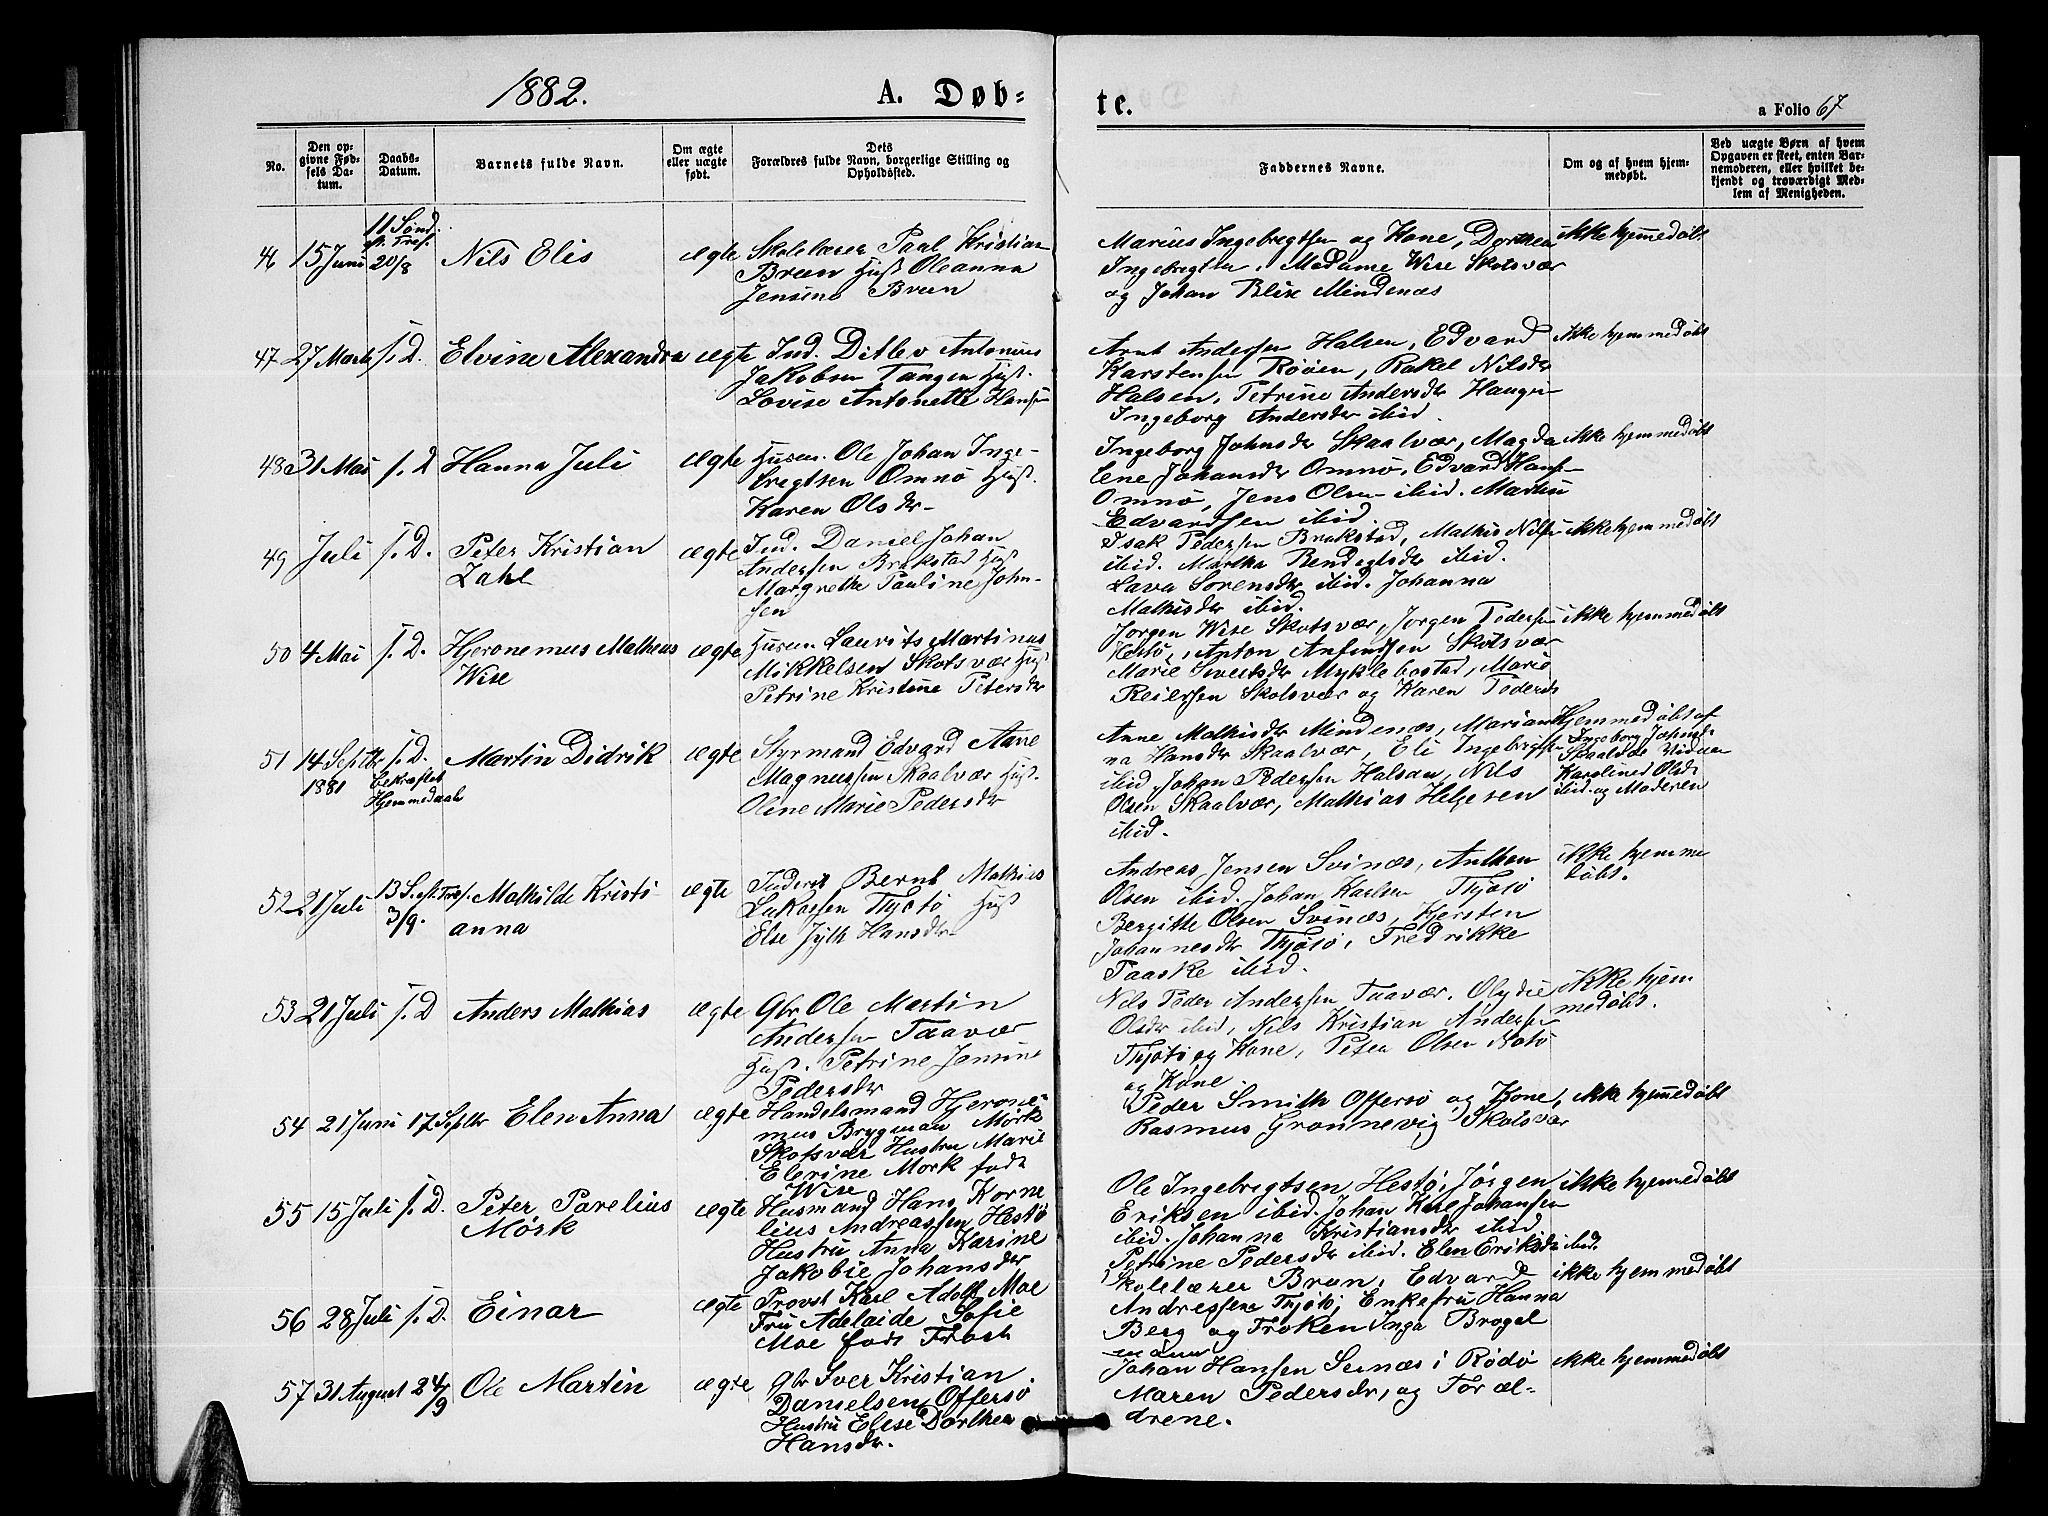 1882. A. Døb-
te.
a Folio 67
No.
Den op-
givne Fød-
sels Da-
tum.
Daabs-
Datum.
Barnets fulde Navn.
Om ægte
eller uægte
født.
Dets
Forældres fulde Navn, borgerlige Stilling og
Opholdssted.
Faddernes Navne.
Om og af hvem hjem-
medøbt.
Ved uægte Børn af hvem
Opgaven er skeet, enten Bar-
nemoderen, eller hvilket be-
kjendt og troværdigt Med-
lem af Menigheden.
46 15 Juni
11 Sønd.
eft. Tref.
20/8
Nils Elis
ægte
Skolelærer Paal Kristian
Bruun Hust Oleanna
Jensine Bruun
Marius Ingebregtsen og Kone, Dorthea
Ingebregtsen, Madame Wise Skotsvær
og Johan Blix Mindenæs
ikke hjemmedøbt
47 27 Marts s. D. Elvine Alexandra ægte
Ind. Ditlev Antonius
Jakobsen Tangen Hust.
Lovise Antonette Hansen
Arnt Andersen Halsen, Edvard
Karstensen Røøen, Rakel Nilsdr
Halsen, Petrine Andersdr Haugen
Ingeborg Andersdr ibid.
ikke hjemmedøbt
48 31 Mai s. D Hanna Juli ægte
Husm. Ole Johan Inge-
bregtsen Omnø Hust.
Karen Olsdr
Ingeborg Johnsdr Skaalvær, Magda
lene Johansdr Omnø, Edvard Hansen
Omnø, Jens Olsen ibid. Martin
Edvardsen ibid.
ikke hjemmedøbt
49 Juli s. D. Peter Kristian
Zahl
ægte
Ind. Daniel Johan
Andersen Brækstad Hust
Margrethe Pauline John-
sen
Isak Pedersen Brækstad, Mathis Nilsen
ibid. Martha Bendigtsdr ibid.
Lava Sørensdr ibid. Johanna
Mathisdr ibid.
ikke hjemmedøbt
50 4 Mai s. D. Hjeronemus Matheus
Wise
ægte
Husm Laurits Martinus
Mikkelsen Skotsvær Hust
Petrine Kristine Petersdr
Jørgen Wise Skotsvær, Jørgen Pedersen
Hestø, Anton Anfindsen Skotsvær
Marie Sivertsdr Myklebostad, Marie
Reiersen Skotsvær og Karen Pedersdr
ikke hjemmedøbt
51 14 Septbr
1881
s. D.
bekræftet
Hjemmedaab
Martin Didrik ægte
Styrmand Edvard Aane
Magnussen Skaalvær Hust.
Oline Marie Pedersdr
Anne Mathisdr Mindenæs, Marian
na Hansdr Skaalvær, Eli Ingebrigtsen
ibid Johan Pedersen Halsan, Nils
Olsen Skaalvær, Mathias Helgesen
ibid.
Hjemmedøbt af
Ingeborg Johns-
Skaalvær
Karoline Olsdr
ibid. og Moderen
52 21 Juli 13 S. eft. Tref.
3/9.
Mathilde Kristi
anna
ægte
Inderst Bernt Mathias
Lukassen Thjøtø Hust
Else Jytk Hansdr
Andreas Jensen Svinæs, Anthon
Olsen ibid. Johan Karlsen Thjøtø
Bergitte Olsen Svinæs, Kjersten
Johannesdr Thjøtø, Fredrikke
Taaske ibid.
ikke hjemme
døbt.
53 21 Juli s. D Anders Mathias ægte
Gbr Ole Martin
Andersen Taavær
Hust. Petrine Jensine
Pedersdr
Nils Peder Andersen Taavær. Olydie
Olsdr ibid, Nils Kristian Andersen
Thjøtø og Kone, Peter Olsen Rotø
og Kone
ikke hjem
medøbt.
54 21 Juni 17 Septbr Elen Anna ægte
Handelsmand Hjerone-
mus Brygman Mørk
Skotsvær Hustru Marie
Elerine Mørk født
Wise
Peder Smith Offersø og Kone,
Rasmus Grønnevig Skotsvær
ikke hjemmedøbt
55 15 Juli s. D. Peter Parelius
Mörk
ægte
Husmand Hans Korne
lius Andreassen Hestø
Hustru Anna Karine
Jakobie Johansdr
Ole Ingebregtsen Hestø, Jørgen
Eriksen ibid. Johan Karl Johansen
ibid. Johanna Kristiansdr ibid
Petrine Pedersdr ibid. Elen Eriksdr ibid.
ikke hjemmedøbt
56 28 Juli s. D. Einar ægte
Provst Karl Adolf Moe
Fru Adelaide Sofie
Moe født Frosch
Skolelærer Brun, Edvard
Andressen Thjøtø, Enkefru Hanna
Berg og Frøken Inga Brogel
mann
ikke hjemmedøbt
57 31 August 24/9 Ole Martin ægte
Gbr Iver Kristian
Danielsen Offersø
Hustru Elise Dorthea
Hansdr.
Johan Hansen Sernæs i Rødø
Maren Pedersdr, og Foræl-
drene.
ikke hjemmedøbt